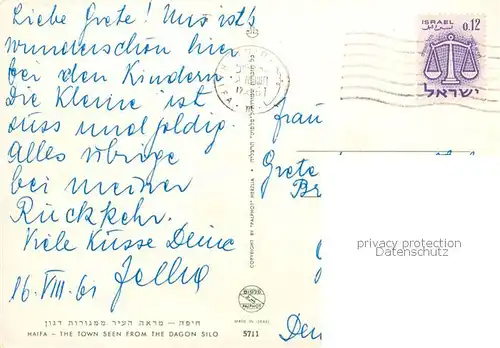 Liebe Grete! Uns ists
wunderschön hier
bei den Kindern.
Die Kleine ist
süss und goldig.
Alles übrige
bei meiner
Rückkehr.
Viele Küsse Deine
16. VIII. 61
חיפה – מראה העיר ממגורות דגון
HAIFA – THE TOWN SEEN FROM THE DAGON SILO
COPYRIGHT BY "PALPHOT" HERZLIA
MADE IN ISRAEL
5711
HAIFA
ISRAEL
0.12
ישראל
Frau
Grete
privacy protection
Datenschutz